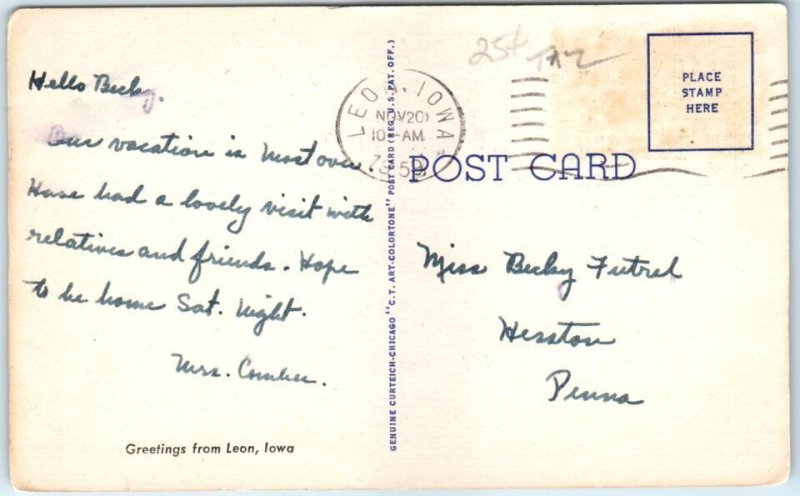 Hello Becky.
Our vacation is most over
Have had a lovely visit with
relatives and friends. Hope
to be home Sat. Night.
Mrs.
Greetings from Leon, Iowa
GENUINE CURTEICH-CHICAGO "C.T. ART-COLORTONE" POST CARD (REG. U.S. PAT. OFF.)
25¢
LEON, IOWA
NOV 20
10-AM
POST CARD
PLACE
STAMP
HERE
Miss Becky Futrel
Hesston
Penna